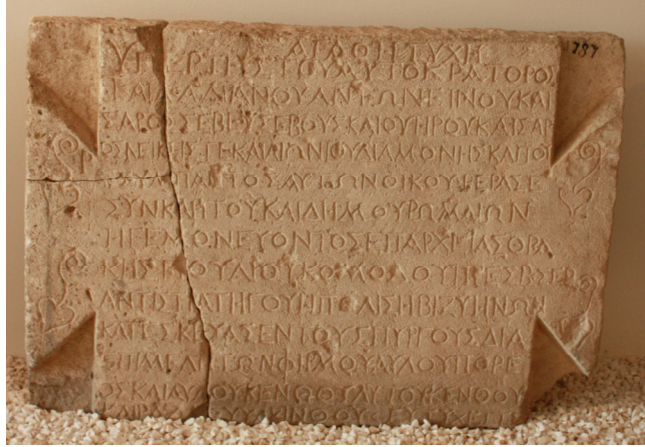 ΑΓΑΘΗ ΤΥΧΗ
ΥΠΕΡ ΤΗΣ ΤΟΥ ΑΥΤΟΚΡΑΤΟΡΟΣ
Τ ΑΙΛ ΑΔΡΙΑΝΟΥ ΑΝΤΩΝΕΙΝΟΥ ΚΑΙ
ΣΑΡΟΣ ΣΕΒ ΕΥΣΕΒΟΥΣ ΚΑΙ ΟΥΗΡΟΥ ΚΑΙΣΑΡ
ΟΣ ΝΕΙΚΗΣ ΤΕ ΚΑΙ ΑΙΩΝΙΟΥ ΔΙΑΜΟΝΗΣ ΚΑΙ ΤΟΥ
ΑΥΤΩΝ ΟΙΚΟΥ ΙΕΡΑΣ ΤΕ
ΣΥΝΚΛΗΤΟΥ ΚΑΙ ΔΗΜΟΥ ΡΩΜΑΙΩΝ
ΗΓΕΜΟΝΕΥΟΝΤΟΣ ΕΠΑΡΧΕΙΑΣ ΘΡΑ
ΚΗΣ Γ ΙΟΥΛΙΟΥ ΚΟΜΟΔΟΥ ΠΡΕΣΒ ΣΕΒ
ΑΝΤΙΣΤΡΑΤΗΓΟΥ Η ΠΟΛΙΣ Η ΒΙΖΥΗΝΩΝ
ΚΑΤΕΣΚΕΥΑΣΕΝ ΤΟΥΣ ΠΥΡΓΟΥΣ ΔΙΑ
ΕΠΙΜΕΛΗΤΩΝ ΦΙΡΜΟΥ ΑΥΛΟΥΠΟΡΕ
ΟΣ ΚΑΙ ΑΥΛΟΥΚΕΝΘΟΥ ΔΥΤΟΥΚΕΝΘΟΥ
737